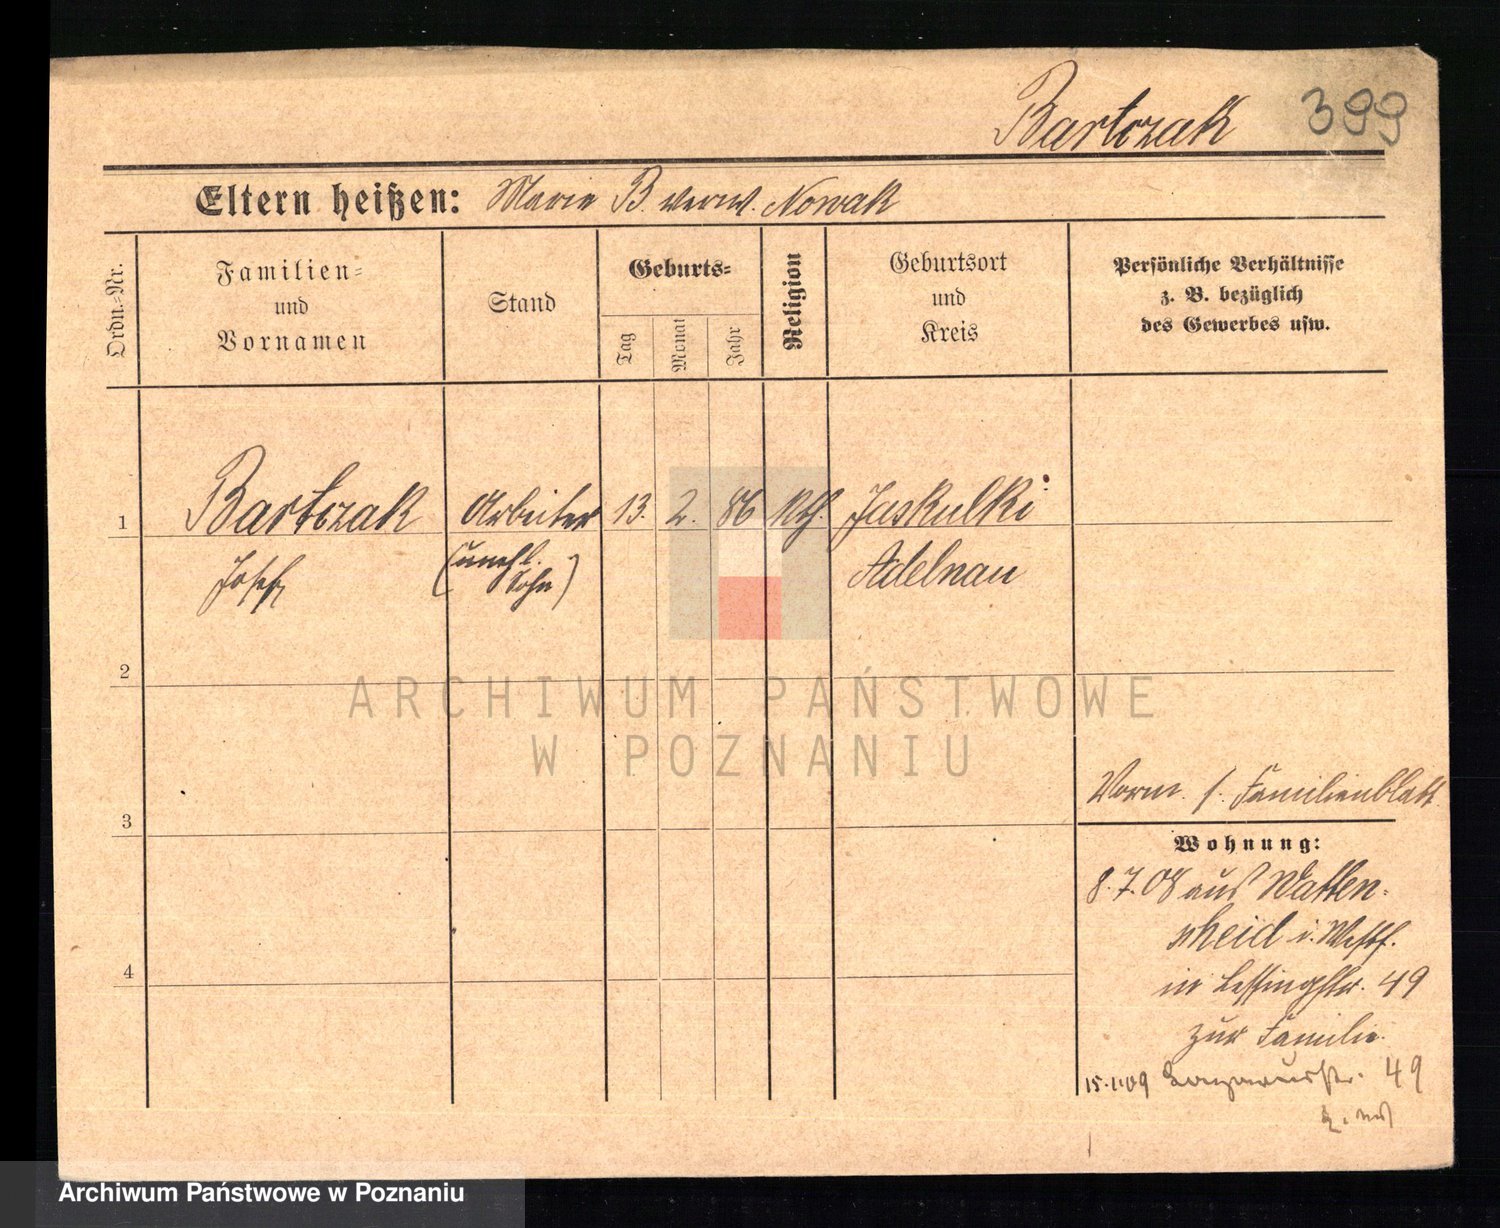 Bartczak 399
Eltern heißen: Marie B. verw. Nowak
Ordn.-Nr.
Familien-
und
Vornamen
Stand
Geburts-
Tag
Monat
Jahr
Religion
Geburtsort
und
Kreis
Persönliche Verhältnisse
z. B. bezüglich
des Gewerbes usw.
1 Bartczak Arbeiter 13. 2. 86 kth. Jaskulki
Josef (unehl. Adelnau
Sohn)
2
ARCHIWUM PAŃSTWOWE
W POZNANIU
Vorm. s. Familienblatt
3
Wohnung:
8.7.08 aus Watten-
scheid i. Westf.
4
in Lessingstr. 49
zur Familie.
15.1.09 49
Archiwum Państwowe w Poznaniu